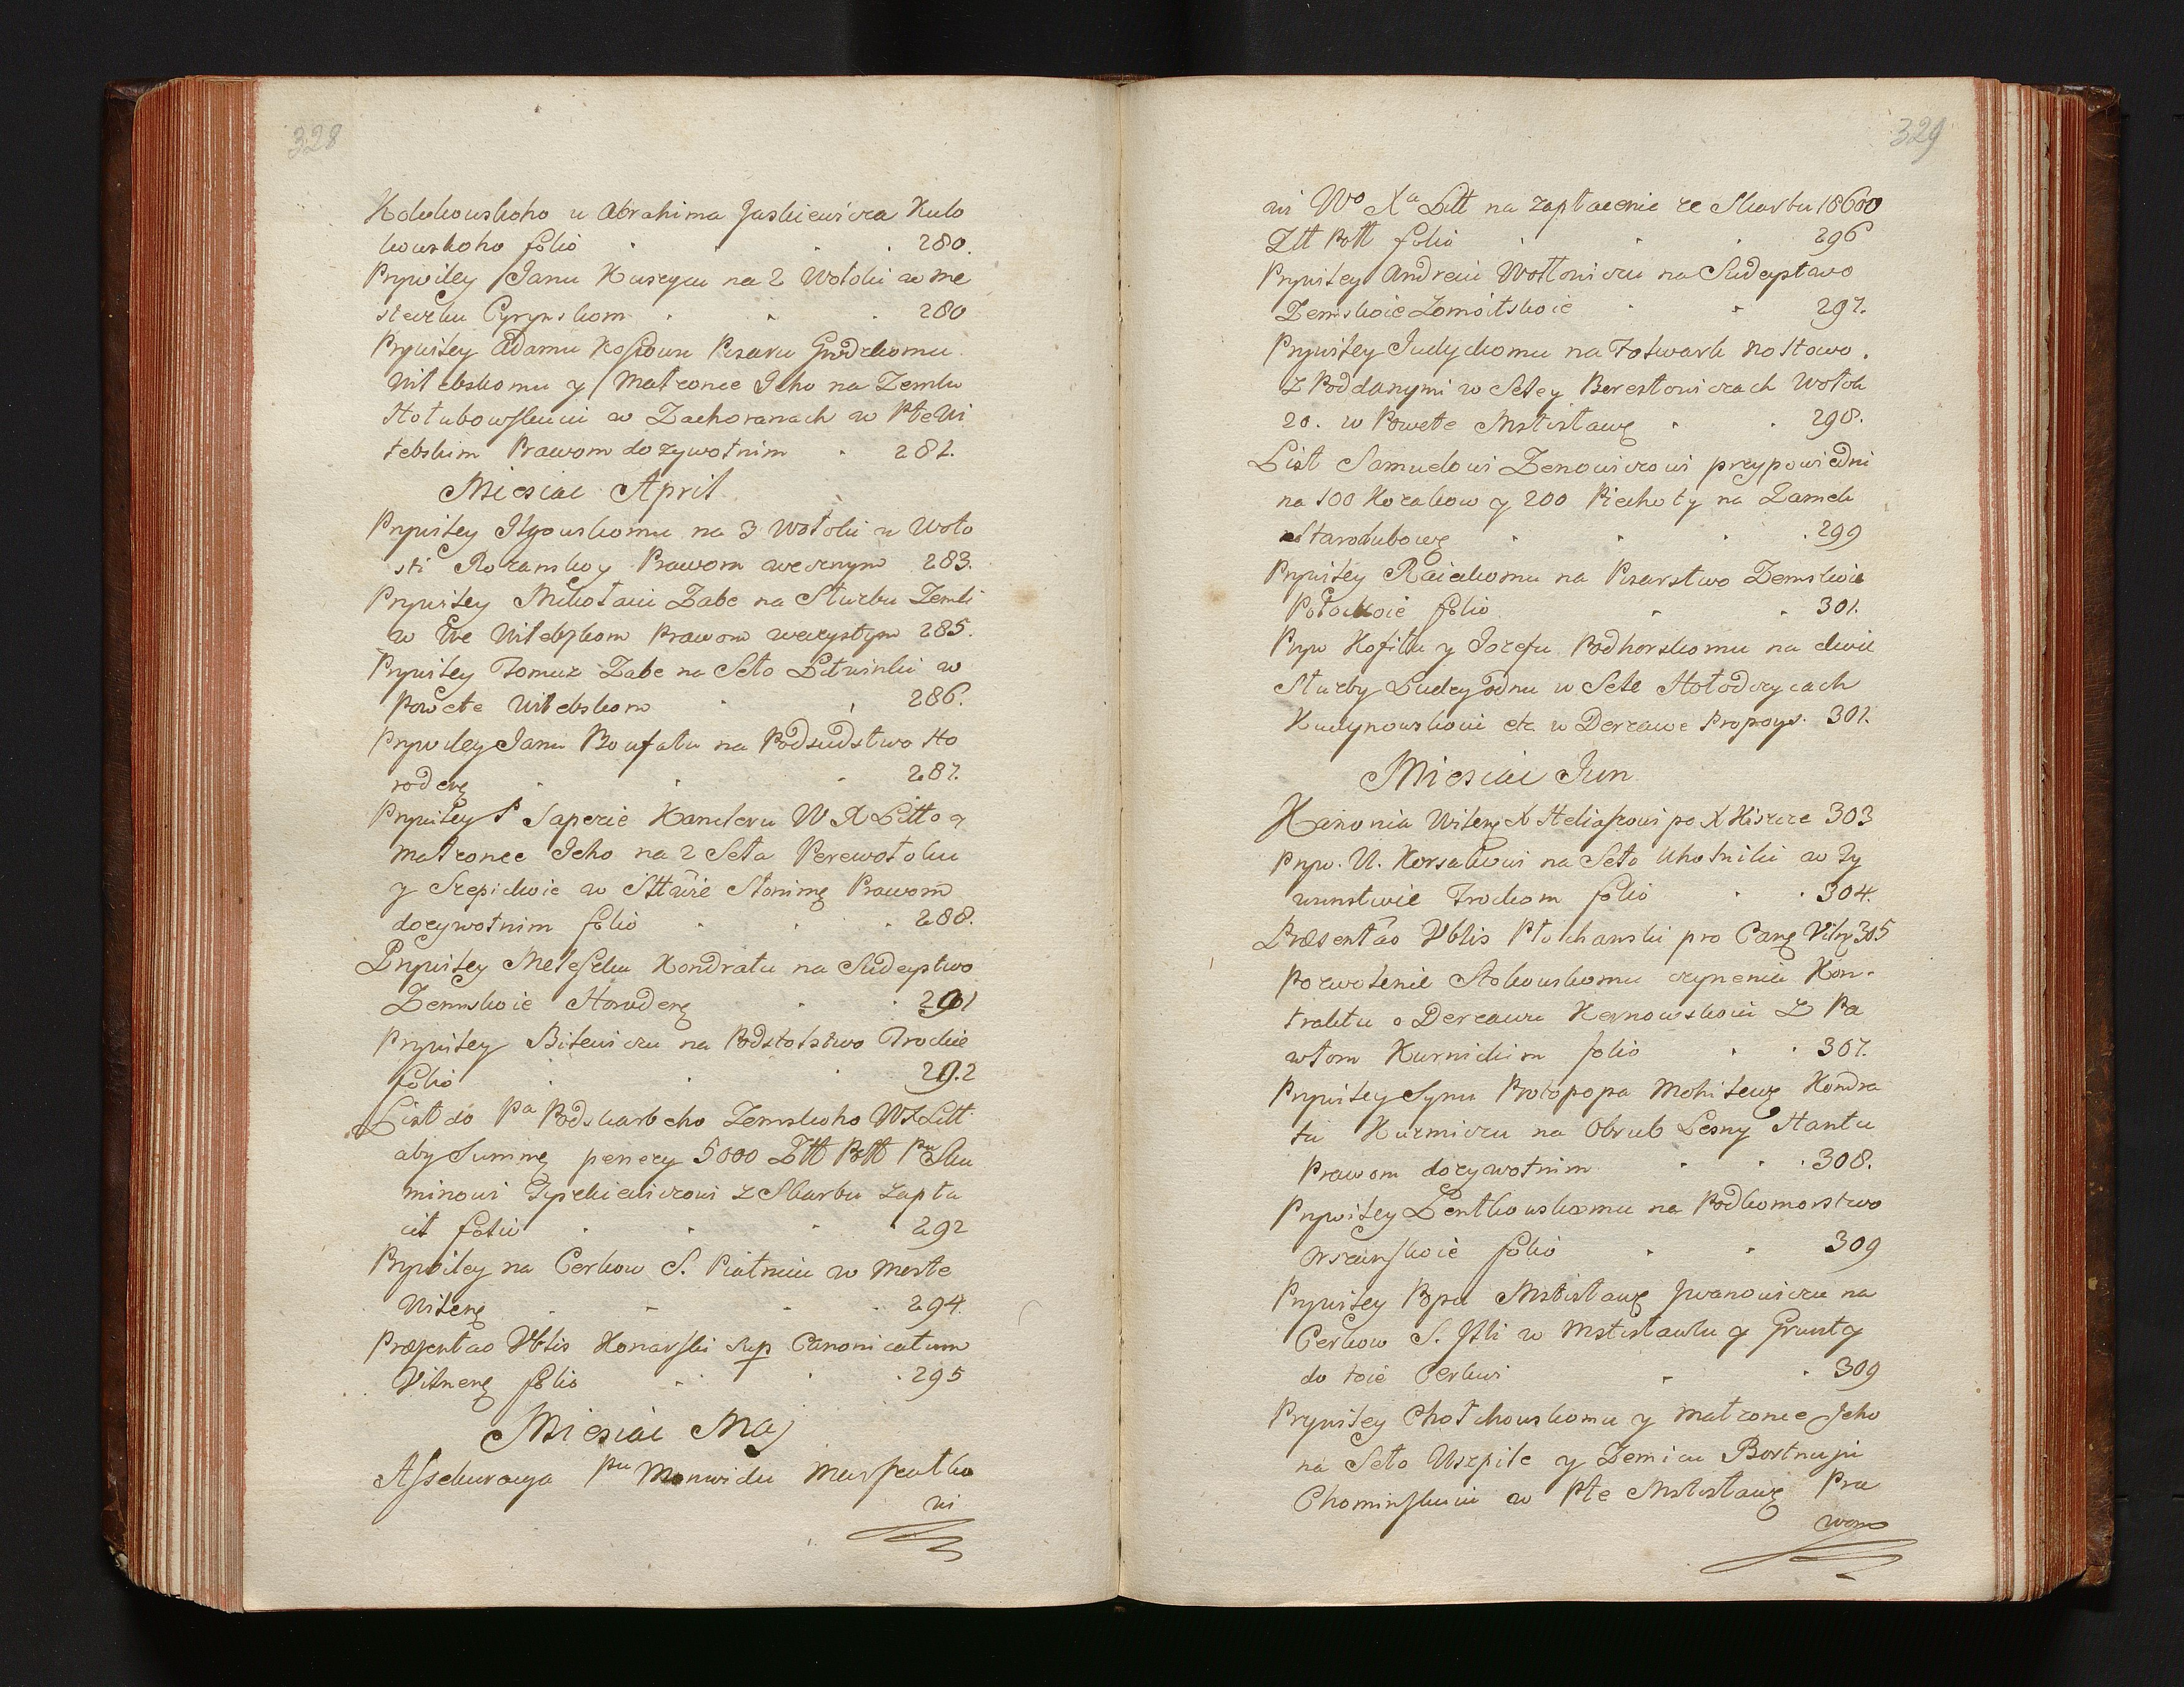 328
Kolukowskoho u Abrahima Jaskiewicza Kulo
kowskoho folio 280.
Prywiley Janu Kuszycu na 2 Wołoki w me
steczku Cyrynskom 280
Prywiley Adamu Kossowu Pisaru Grodzkomu
Witebskomu y Małzonce Jeho na Zemlu
Hołubowskuiu w Zachoranach w Pte Wi
tebskim Prawom dozywotnim 281.
Miesiac April
Prywiley Ihowskomu na 3 Wołoki u Woło
sti Rozanskoy Prawom wecznym 283.
Prywiley Mikołaiu Zabe na Słuzbu Zemli
w Wwe Witebskom Prawom weczystym 285.
Prywiley Tomusz Zabe na Seło Litwinki w
Powete Witebskom 286.
Prywiley Janu Boufału na Podsudstwo Ho
rodens 287.
Prywiley P Sapezie Kancleru W X Litto y
Małzonce Jeho na 2 Seła Perewołoku
y Szepickoie w Sttwie Słonims Prawom
dozywotnim folio 288.
Prywiley Meleszku Kondratu na Sudeystwo
Zemskoie Horodens 291
Prywiley Bilewiczu na Podstolstwo Trockie
folio 292
List do Pa Podskarbeho Zemskoho WXLitt
aby Summy penezy 5000 Ztt Pott Pnu Sku
minowi Tyszkiewiczowi z Skarbu zapła
cił folio 292
Prywiley na Cerkow S. Piatniu w Meste
Wilens 294.
Præsentao Vblis Konarski sup Canonicatum
Vilnens folio 295
Miesiac Maj
Assekuracya Pnu Monwidu Marszałko
wi

329
wi Wo Xa Litt na zapłacenie ze Skarbu 18600
Ztt Pott folio 296
Prywiley Andreiu Wołłowiczu na Sudeystwo
Zemskoie Zomoitskoie 297.
Prywiley Judyckomu na Fołwark Nostowo.
z Poddanymi w Seley Berestowiczach Wołok
20. w Powete Mstisławs 298.
List Samuelowi Zenowiczowi przypowiedni
na 100 Kozakow y 200 Piechoty na Zamek
Starodubows 299
Prywiley Raieckomu na Pisarstwo Zemskoie
Połockoie folio 301.
Pryw Kofiłu y Jozefu Podhorskomu na dwie
Słuzby Ludey odnu w Sele Hołodczycach
Kudynowskoiu etc w Derzawe Propoys. 301.
Miesiac Jun
Kanonia Wilens X Heliaszowi po X Kiszce 303
Pryw. U. Korsakowi na Seło Uhotniki w Ty
wunstwie Trockom folio 304.
Præsentao Vblis Płochanski pro Cans Vilns 305
Pozwolenie Stokowskomu czynenia Kon-
traktu o Derzawu Kernowskoiu z Pa
włom Kurnickim folio 307.
Prywiley Synu Protopopa Mohilews Kondra
tu Kuzmiczu na Obrub Lesny Hantu
Prawom dozywotnim 308.
Prywiley Lentkowskomu na Podkomorstwo
Orszanskoie folio 309
Prywiley Popu Mstisławs Iwanowiczu na
Cerkow S. Jlli w Mstisławlu y Grunty
do toie Cerkwi 309
Prywiley Chotchowskomu y Małzonce Jeho
na Seło Uszpile y Zemicu Bortnuju
Chominskuiu w Pte Mstisławs Pra
wom